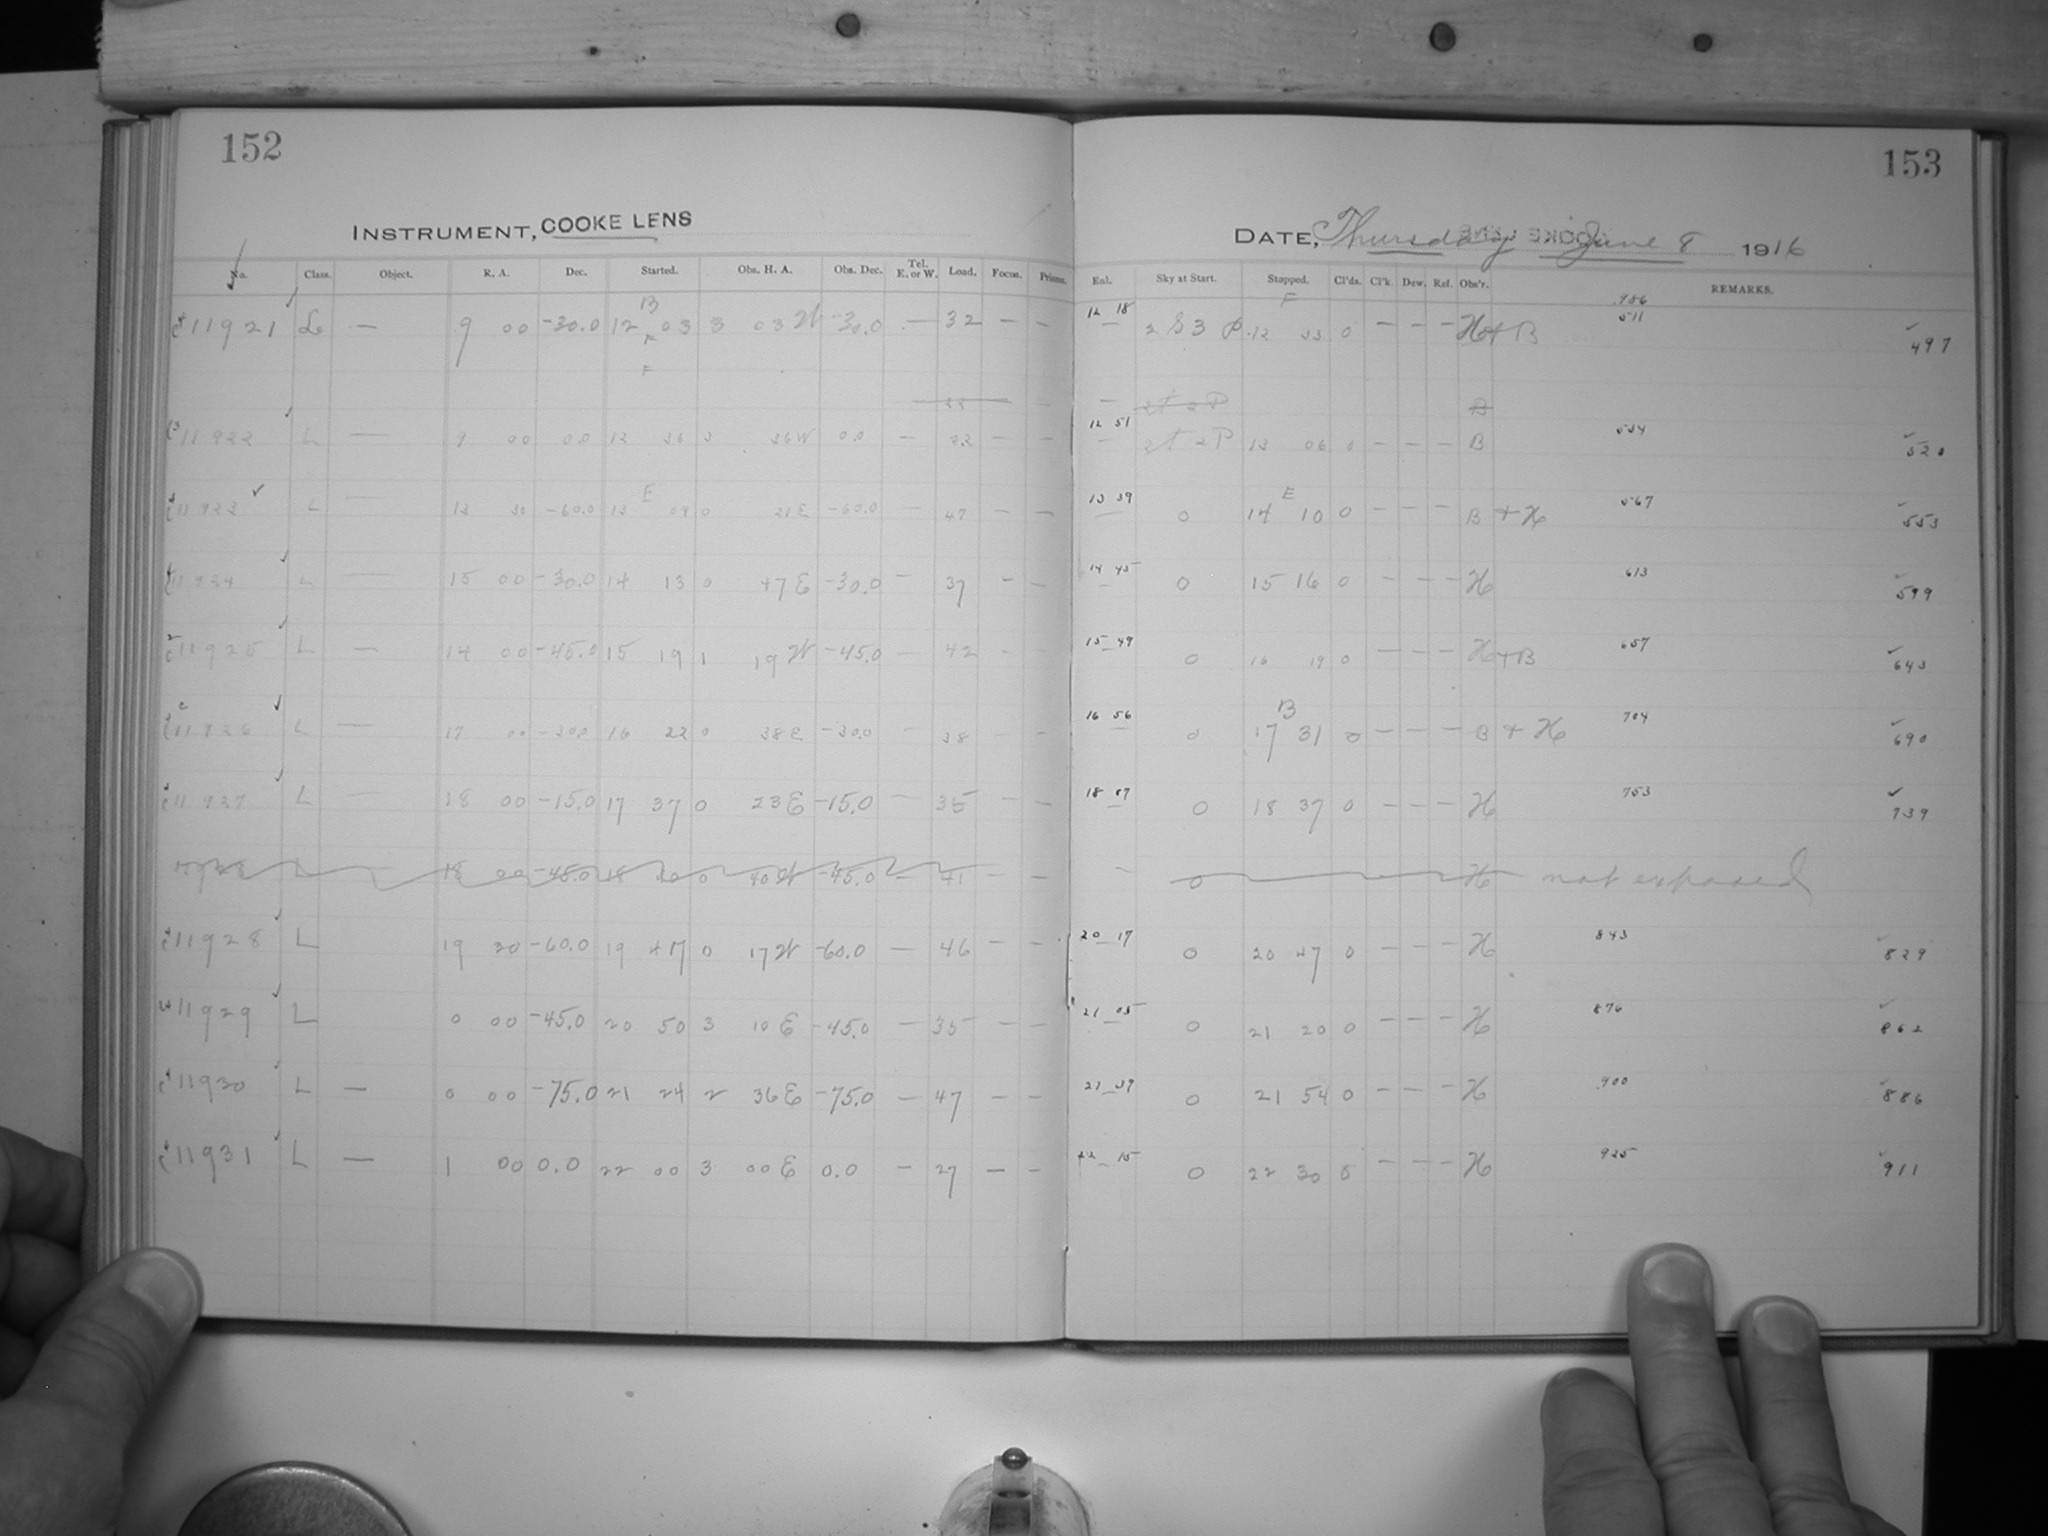 152
INSTRUMENT, COOKE LENS
No. Class. Object. R. A. Dec. Started. Obs. H. A. Obs. Dec. Tel. E. or W. Load. Focus. Prisms.
B
11921 L — 9 00 -30.0 12 03 3 03 W -30.0 — 32 — —
F
11922 L — 9 00 0.0 12 36 3 36 W 0.0 — 22 — —
E
11923 L — 13 30 -60.0 13 09 0 21 E -60.0 — 47 — —
11924 L — 15 00 -30.0 14 13 0 47 E -30.0 — 37 — —
11925 L — 14 00 -45.0 15 19 1 19 W -45.0 — 42 - -
11926 L — 17 00 -30.0 16 22 0 38 E -30.0 — 38 - -
11927 L — 18 00 -15.0 17 37 0 23 E -15.0 — 35 — —
L 18 00 -45.0 18 40 0 40 W -45.0 — 41 — —
11928 L 19 30 -60.0 19 47 0 17 W -60.0 — 46 — —
11929 L 0 00 -45.0 20 50 3 10 E -45.0 — 35 — —
11930 L — 0 00 -75.0 21 24 2 36 E -75.0 — 47 — —
11931 L — 1 00 0.0 22 00 3 00 E 0.0 — 27 — —
153
DATE, Thursday June 8 1916
COOKE LENS
Enl. Sky at Start. Stopped. Cl'ds. Cl'k. Dew. Ref. Obs'r. REMARKS.
12 18 F .986
— 2 S 3 P 12 33 0 — — — H + B 511 497
— 2t 2P B
12 51 2t 2P 13 06 0 — — — B 534 520
13 39 E
— 0 14 10 0 — — — B + H 567 553
14 45 0 15 16 0 — — — H 613 599
15 49 0 16 19 0 — — — H + B 657 643
B
16 56 0 17 31 0 — — — B + H 704 690
18 07 0 18 37 0 — — — H 753 739
— 0 H not exposed
20 17 0 20 47 0 — — — H 843 829
21 05 0 21 20 0 — — — H 876 862
21 39 0 21 54 0 — — — H .900 886
22 15 0 22 30 0 — — — H 925 911